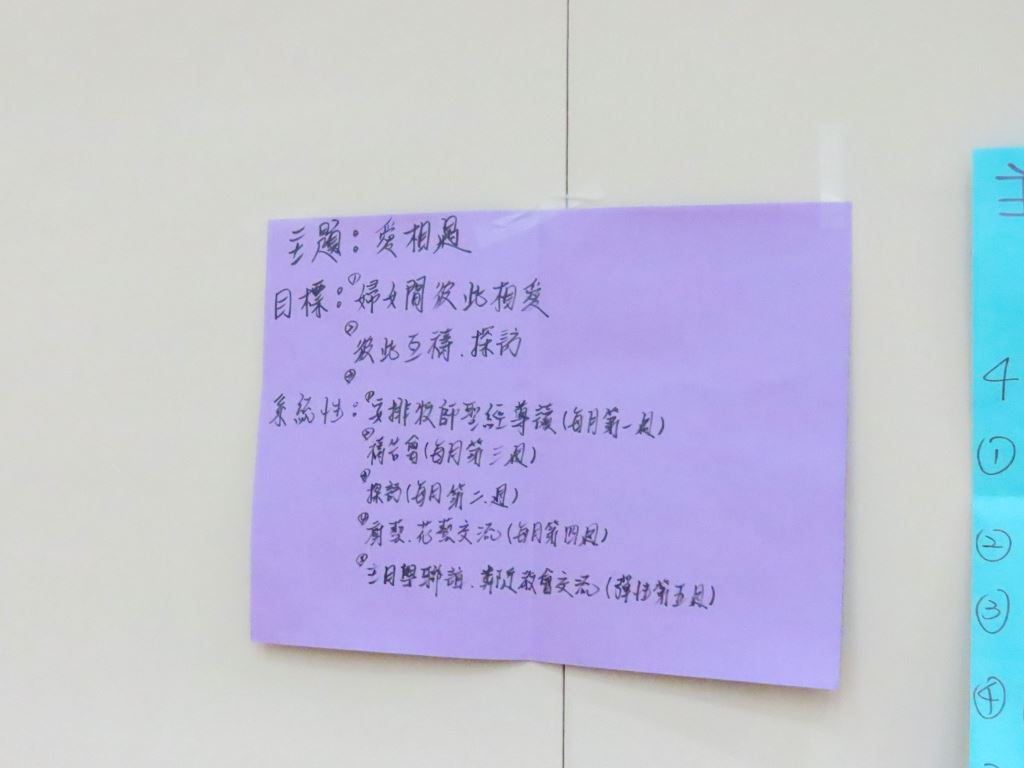 主題：愛相遇
目標：①婦女間彼此相愛
②彼此互禱、探訪
③
系統性：①安排牧師聖經導讀(每月第一週)
②禱告會(每月第三週)
③探訪(每月第二週)
④廚藝、花藝交流(每月第四週)
⑤主日學聯誼、鄰近教會交流(彈性第五週)
主
4
①
②
③
④